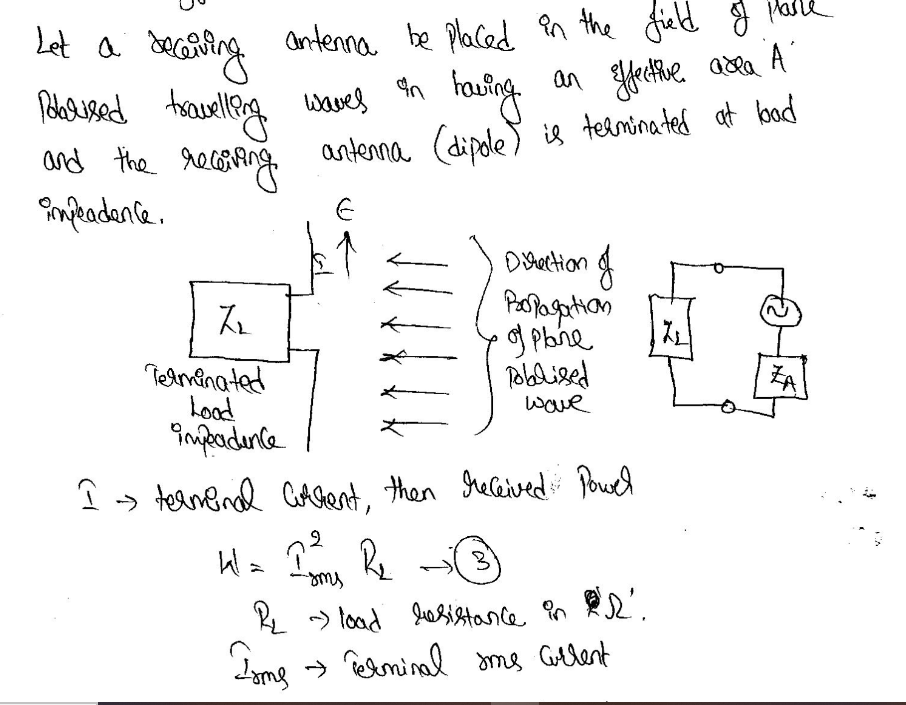 Let a receiving antenna be placed in the field of plane
Polarised travelling waves in having an effective area 'A'
and the receiving antenna (dipole) is terminated at load
impeadence.
E
I
Z_L
Terminated
Load
impeadence
Direction of
Propagation
of plane
Polarised
wave
Z_L
~
Z_A
I → terminal current, then received Power
W = I²rms R_L → ③
R_L → load resistance in 'Ω'.
Irms → Terminal rms current